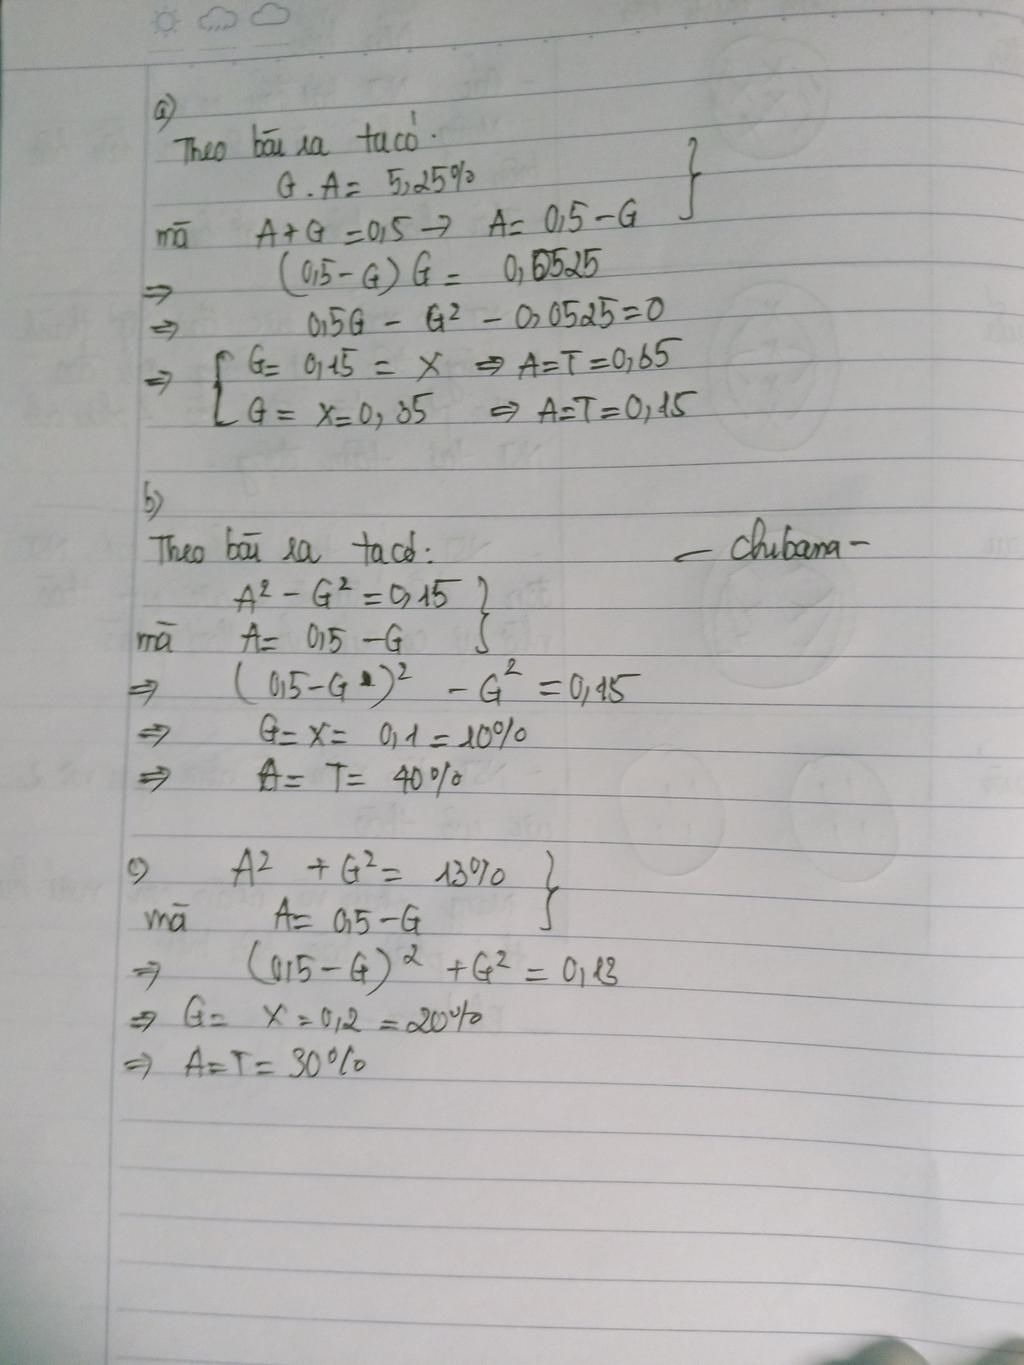 a)
Theo bài ra ta có:
G.A = 5,25%
mà A+G = 0,5 → A = 0,5 - G
⇒ (0,5-G) G = 0,0525
⇒ 0,5G - G² - 0,0525 = 0
⇒ G = 0,15 = X ⇒ A=T=0,35
G = X = 0,35 ⇒ A=T=0,15
b)
Theo bài ra ta có:
- Chubana -
A² - G² = 0,15
mà A = 0,5 - G
⇒ (0,5-G)² - G² = 0,15
⇒ G = X = 0,1 = 10%
⇒ A = T = 40%
c) A² + G² = 13%
mà A = 0,5 - G
⇒ (0,5-G)² + G² = 0,13
⇒ G = X = 0,2 = 20%
⇒ A=T= 30%